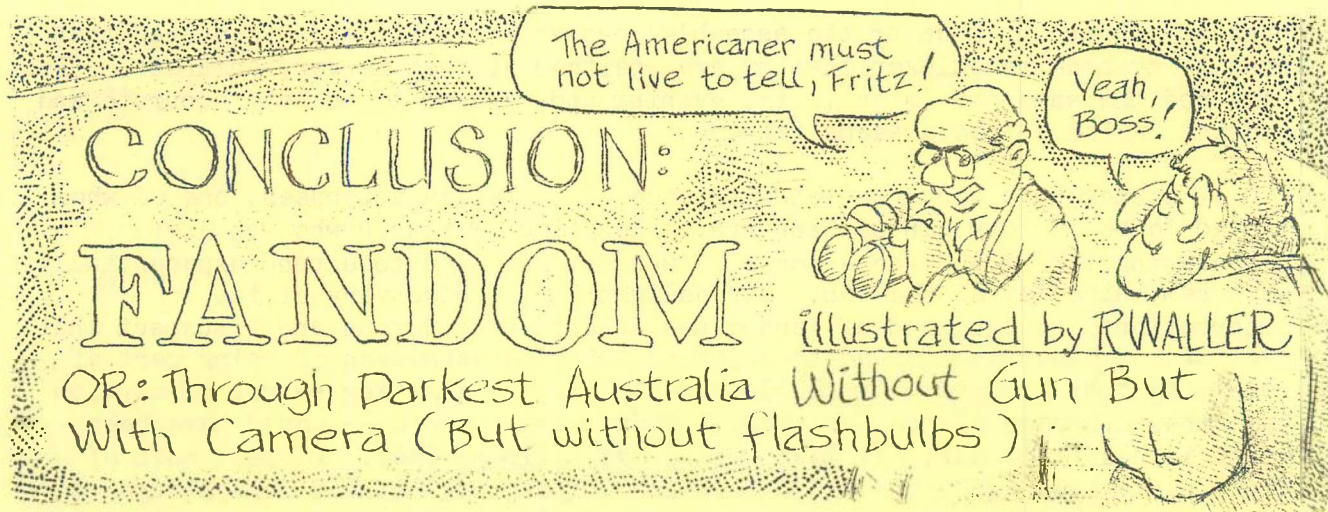 The Americaner must
not live to tell, Fritz!
Yeah,
Boss!
CONCLUSION:
FANDOM
illustrated by RWALLER
OR: Through Darkest Australia Without Gun But
With Camera (But without flashbulbs)